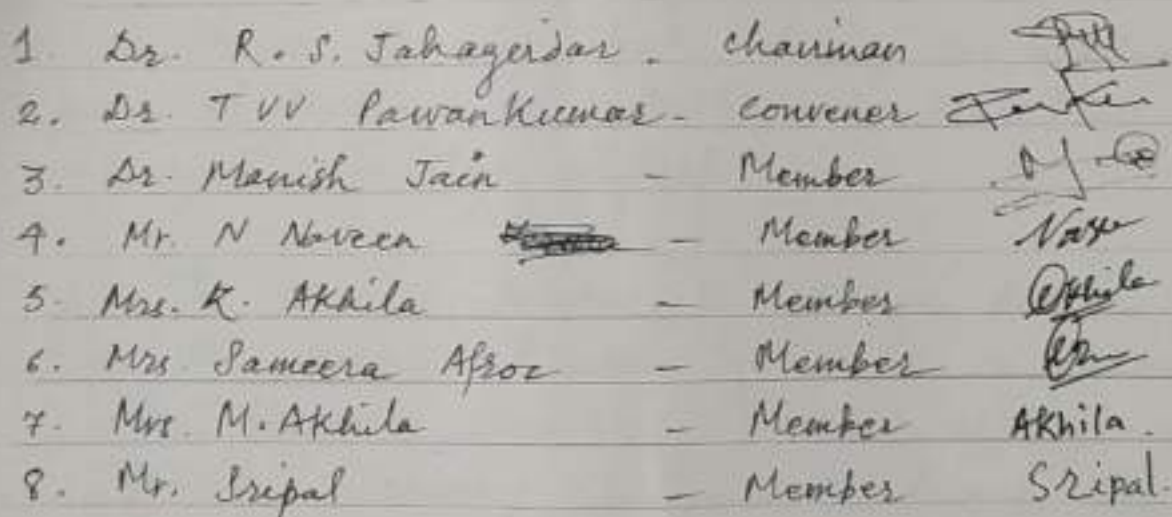 1. Dr. R. S. Jahagerdar. - chairman
2. Dr. T VV PawanKumar - convener
3. Dr. Manish Jain - Member
4. Mr. N Naveen - Member
5. Mrs. K. Akhila - Member Akhila
6. Mrs Sameera Afroz - Member
7. Mrs. M. Akhila - Member Akhila.
8. Mr. Sripal - Member Sripal.